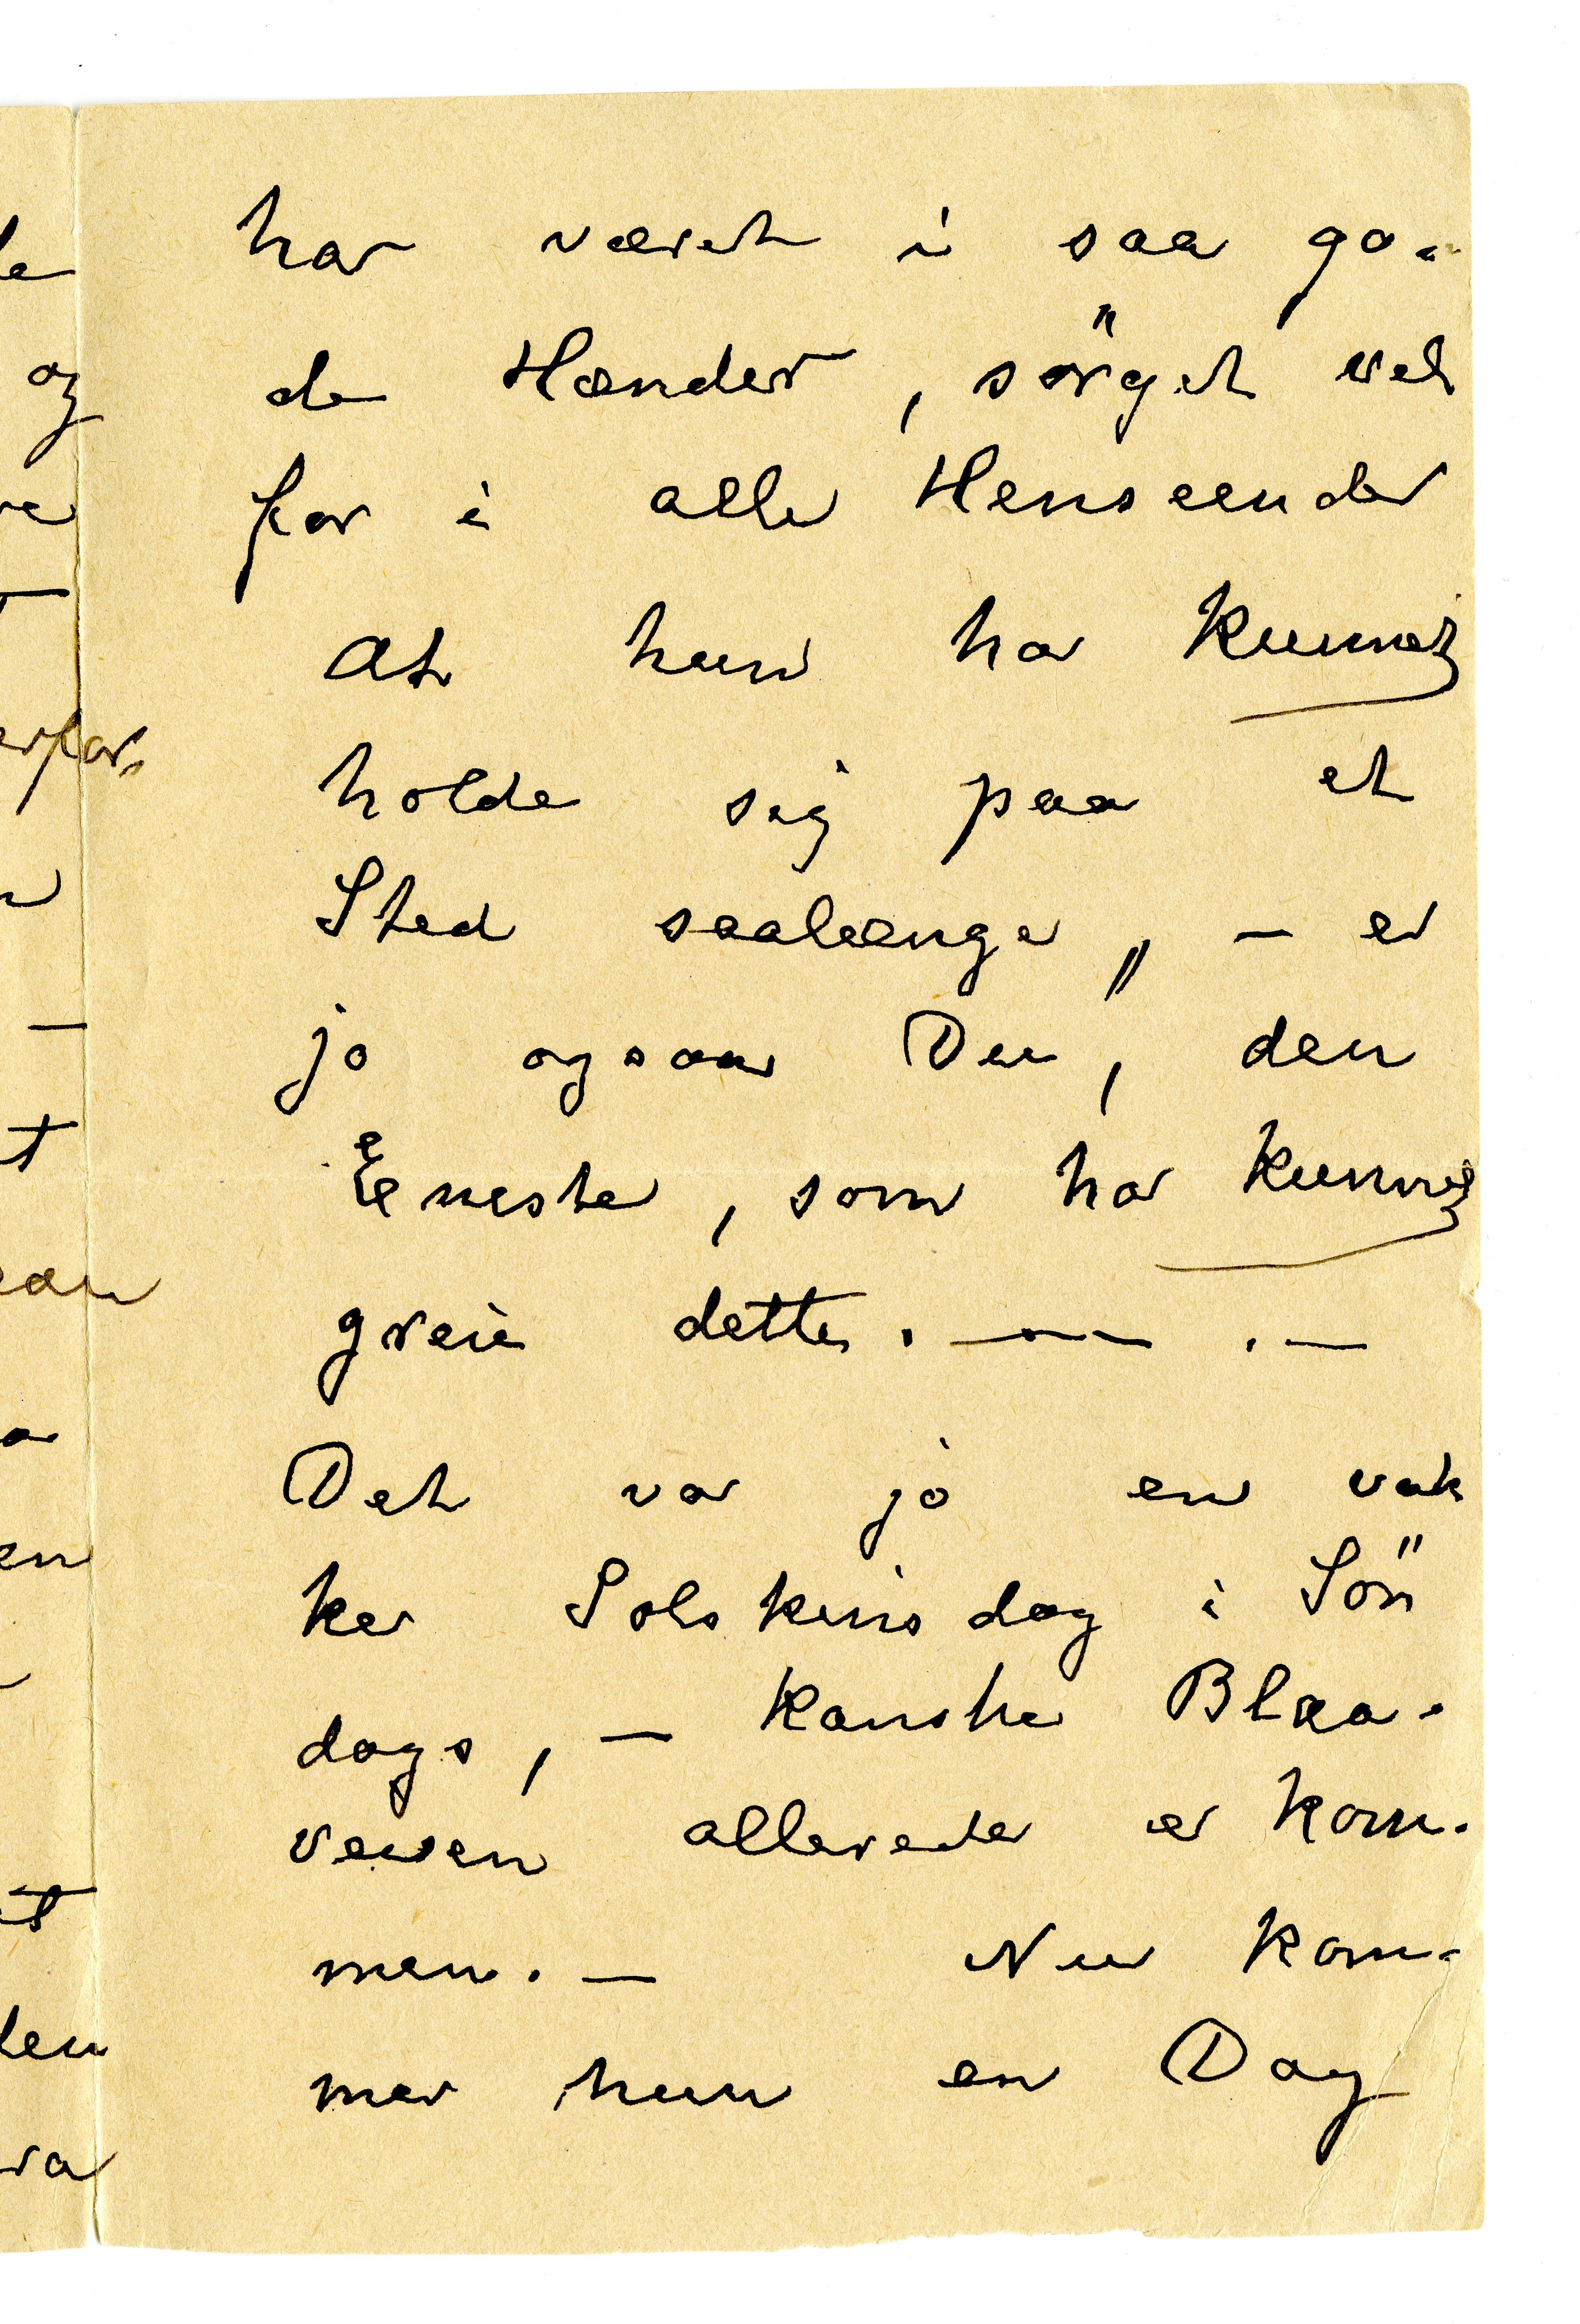 har været i saa go-
de Hænder, sörget vel
for i alle Henseender
At hun har kunnet
holde sig paa et
Sted saalænge, – er
jo ogsaa Du, den
Eneste, som har kunnet
greie dette. — . —
Det var jo en vak
ker Solskinsdag i Sön
dags, – kanske Blaa-
veisen allerede er kom-
men. – Nu kom-
mer hun en Dag